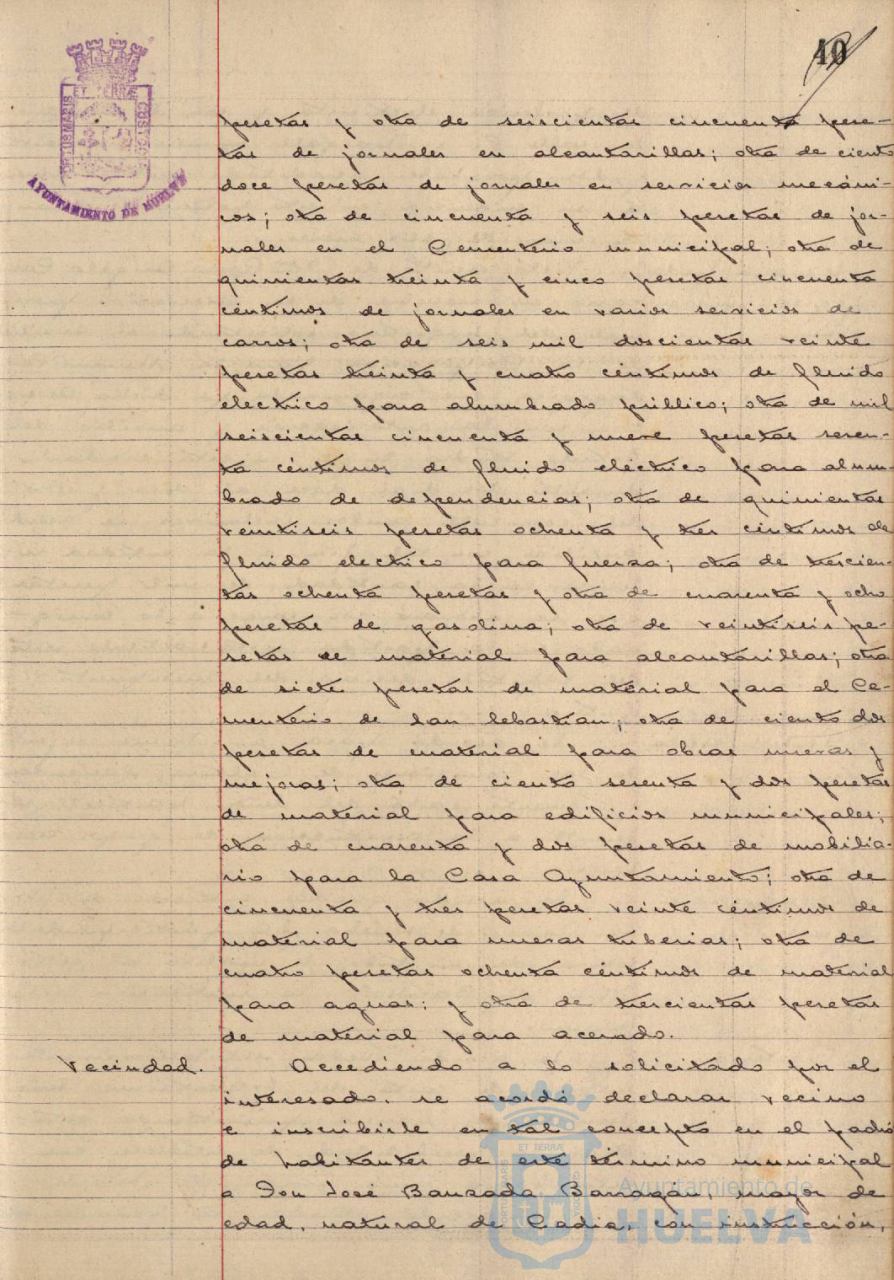 40
ET TERRÆ
AYUNTAMIENTO DE HUELVA
pesetas y otra de seiscientas cincuenta pese-
tas de jornales en alcantarillas; otra de ciento
doce pesetas de jornales en servicios mecáni-
cos; otra de cincuenta y seis pesetas de jor-
nales en el Cementerio municipal; otra de
quinientas treinta y cinco pesetas cincuenta
céntimos de jornales en varios servicios de
carros; otra de seis mil doscientas veinte
pesetas treinta y cuatro céntimos de fluido
electrico para alumbrado público; otra de mil
seiscientas cincuenta y nueve pesetas sesen-
ta céntimos de fluido eléctrico para alum-
brado de dependencias; otra de quinientas
veintiseis pesetas ochenta y tres céntimos de
fluido electrico para fuerza; otra de trescien-
tas ochenta pesetas y otra de cuarenta y ocho
pesetas de gasolina; otra de veintiseis pe-
setas de material para alcantarillas; otra
de siete pesetas de material para el Ce-
menterio de San Sebastian; otra de ciento dos
pesetas de material para obras nuevas y
mejoras; otra de ciento sesenta y dos pesetas
de material para edificios municipales;
otra de cuarenta y dos pesetas de mobilia-
rio para la Casa Ayuntamiento; otra de
cincuenta y tres pesetas veinte céntimos de
material para nuevas tuberias; otra de
cuatro pesetas ochenta céntimos de material
para aguas; y otra de trescientas pesetas
de material para acerado.
Vecindad. Accediendo a lo solicitado por el
interesado, se acordó declarar vecino
e inscribirle en tal concepto en el padrón
de habitantes de este término municipal
a Don José Bauzada Barragán, mayor de
edad, natural de Cadiz, con instrucción,
ET TERRÆ
Ayuntamiento de
HUELVA